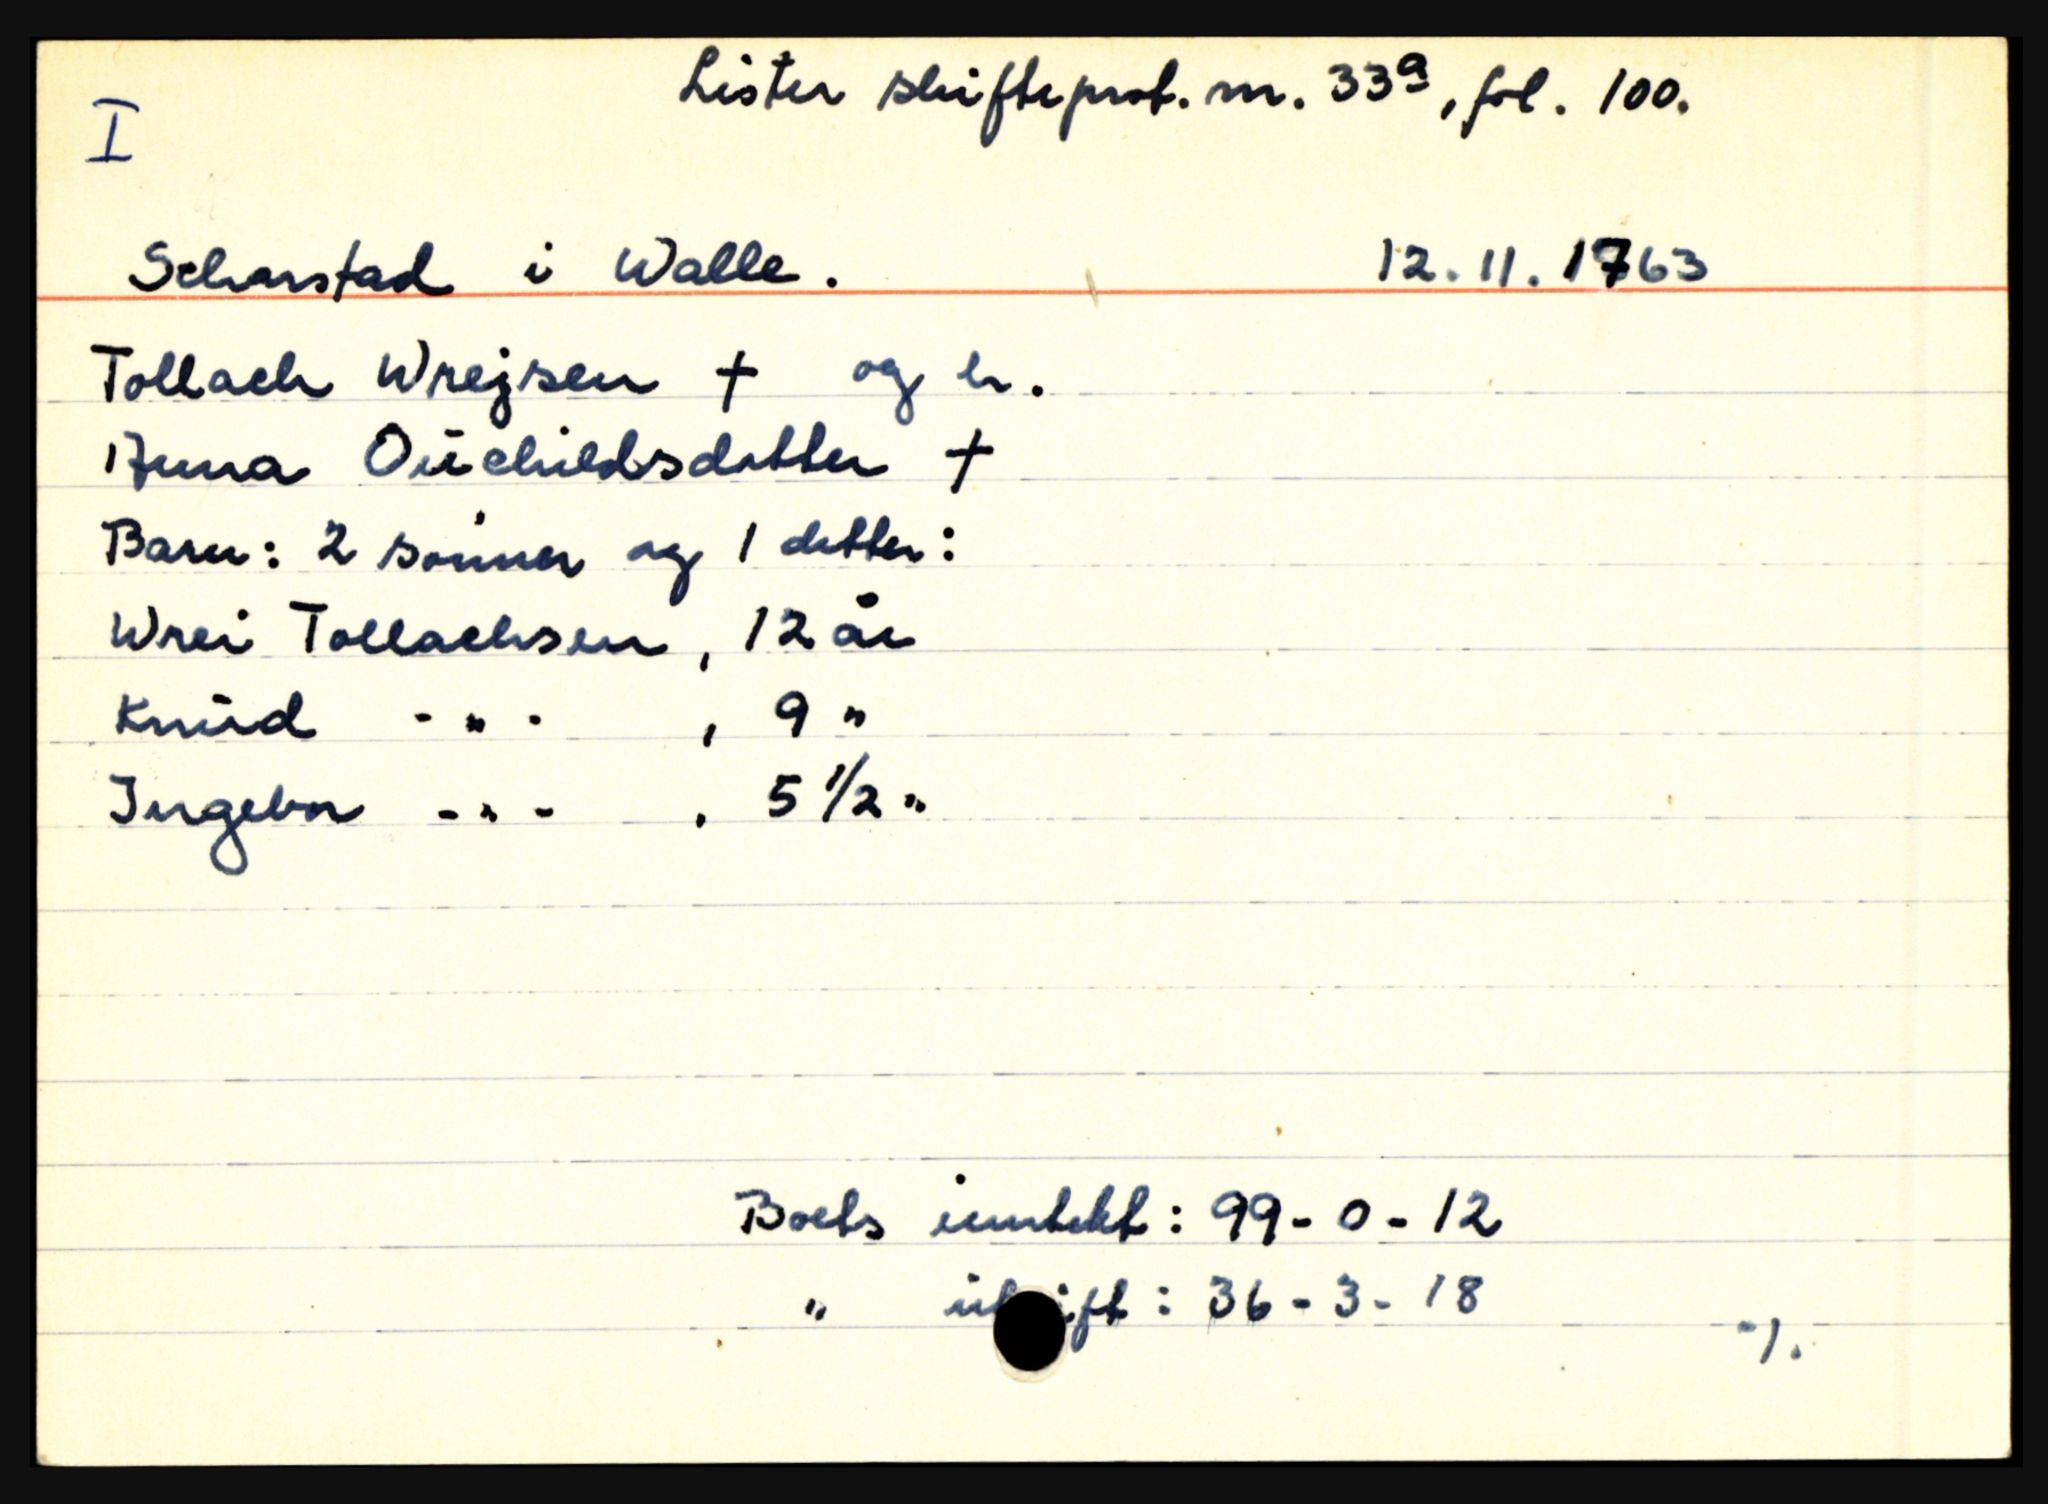 Lister skifteprot. nr. 33a, fol. 100.
I
Scharstad i Walle. 12.11.1763
Tollach Wrejsen † og h.
Anna Oüchildsdatter †
Barn: 2 sönner og 1 datter:
Wrei Tollachsen, 12 år
Knüd - " - , 9 "
Ingebor - " - , 5 1/2 "
Boets inntekt: 99-0-12
" : 36-3-18
-/.